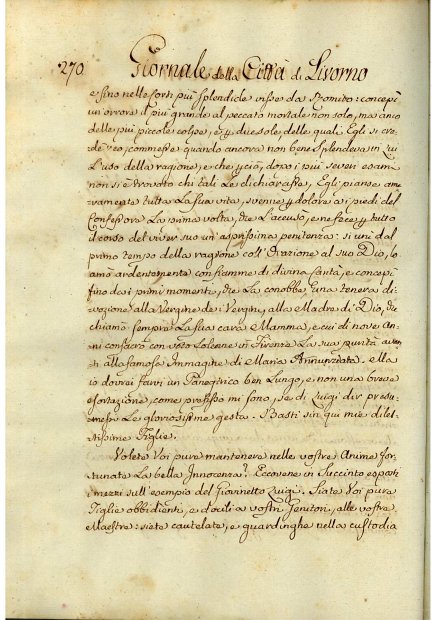 270 Giornale della Città di Livorno
e fino nelle Corti più Splendide visse da Romito: concepì
un'orrore il più grande al peccato mortale non solo, ma anco
delle più piccole colpe, e p due sole, delle quali Egli si cre-
de reo, commesse quando ancora non bene Splendeva in Lui
l'uso della ragione, e che p ciò, dopo i più severi esami
non si è trovato chi tali le dichiarasse, Egli pianse ama-
ramente tutta La sua vita, svenne p dolore a i piedi del
Confessore La prima volta, che L'accusò, e ne fece p tutto
il corso del viver suo un'asprissima penitenza: si unì dal
primo tempo della ragione coll'Orazione al suo Dio, lo
amò ardentemente con fiamme di divina carità, e concepì
fino dai primi momenti, che La conobbe, una tenera di-
vozione alla Vergine de i Vergini, alla Madre di Dio, che
chiamò sempre La sua cara Mamma, e cui di nove An-
ni consacrò con voto Solenne in Firenze La sua purità avan-
ti alla famosa Immagine di Maria Annunziata. Ma
io dovrei farvi un Panegirico ben Lungo, e non una breve
esortazione, come prefisso mi sono, se di Luigi dir presu-
messi Le gloriosissime gesta. Basti sin qui mie dilet-
tissime Figlie.
Volete Voi pure mantenere nelle vostre Anime for-
tunate La bella Innocenza? Eccovene in Succinto esposti
i mezzi sull'esempio del Giovinetto Luigi. Siate Voi pure
Figlie obbidienti, e docili a vostri Genitori, alle vostre
Maestre: siate cautelate, e guardinghe nella custodia